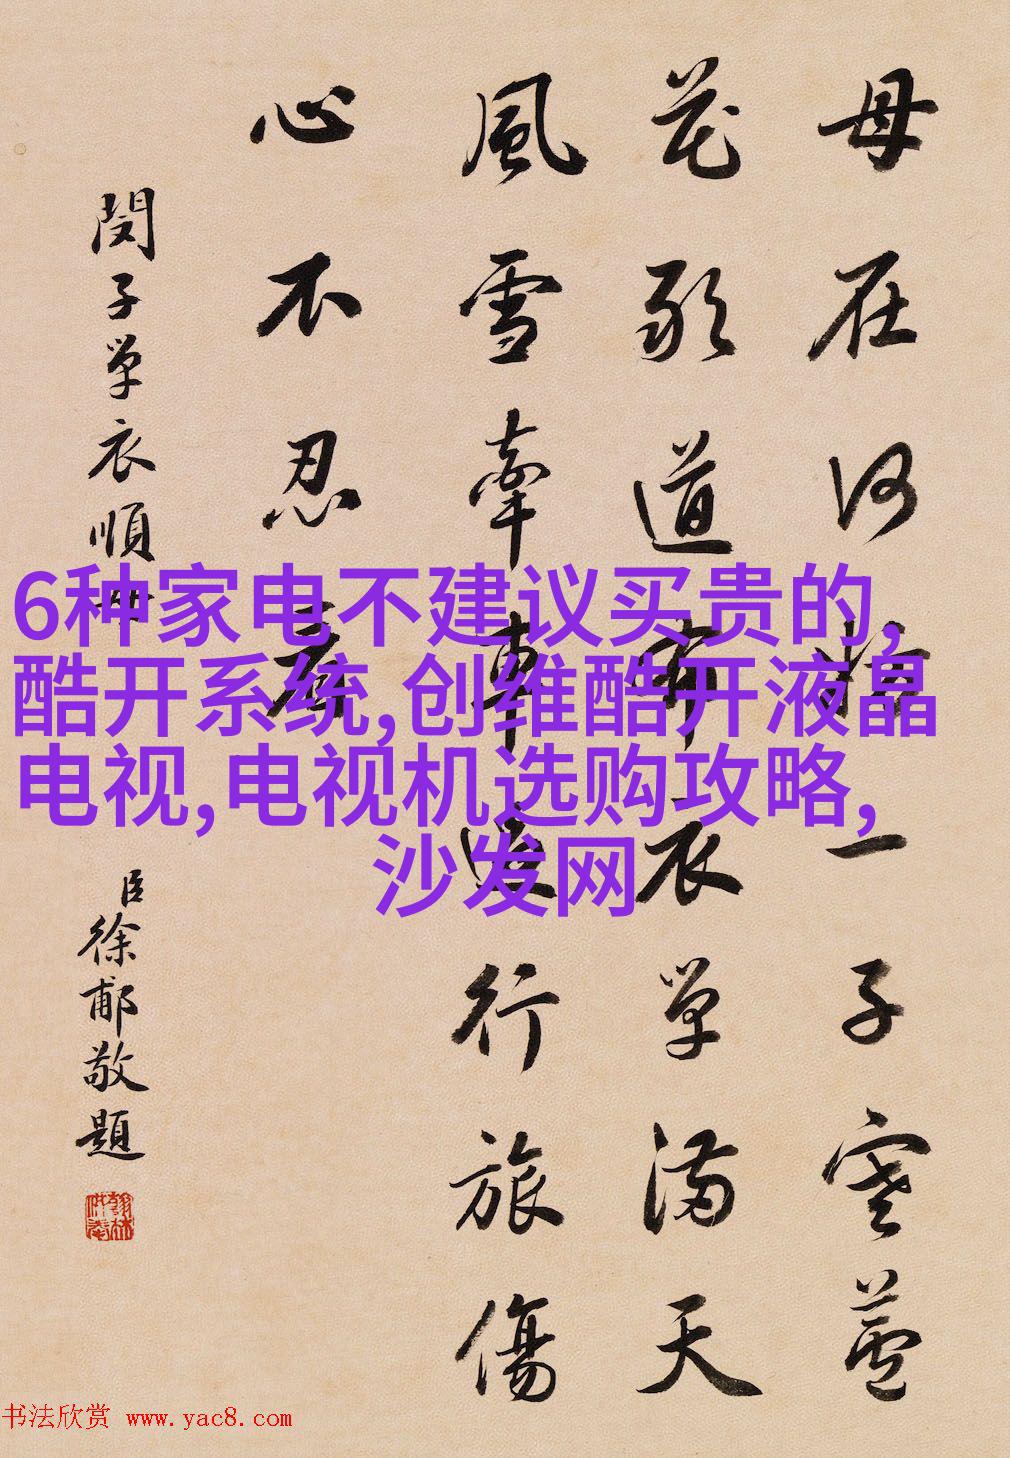 母在何妨一子寒蘆
花敢道布衣單滿天
風雪牽車還行旅傷
心不忍看
閔子單衣順母
臣徐郙敬題
6种家电不建议买贵的,
酷开系统,创维酷开液晶
电视,电视机选购攻略,
沙发网
书法欣赏 www.yac8.com